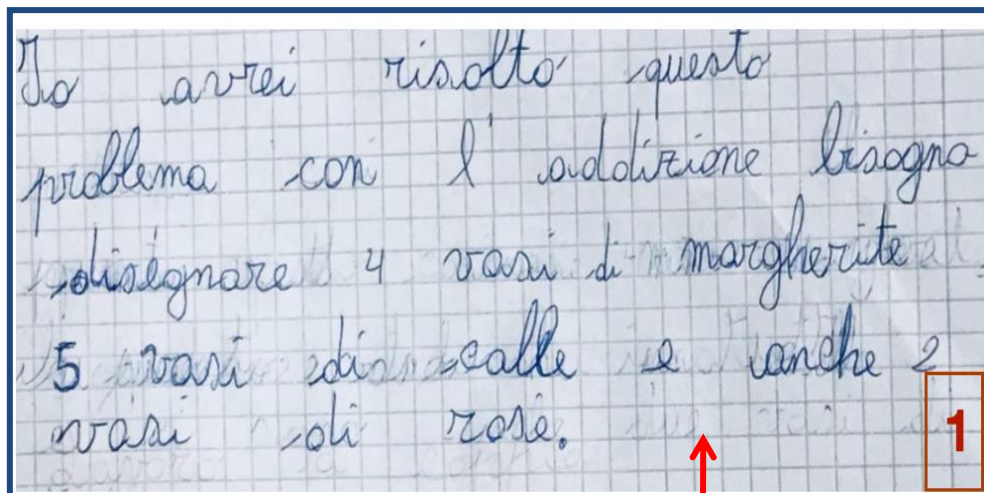 Io avrei risolto questo
problema con l' addizione bisogna
disegnare 4 vasi di margherite
5 vasi di calle e anche 2
vasi di rose.
1